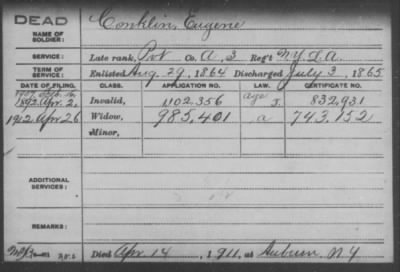 DEAD
NAME OF SOLDIER:
Conklin, Eugene
SERVICE:
Late rank, Pvt Co. A, 3 Reg't N.Y.L.A.
TERM OF SERVICE:
Enlisted Aug. 29, 1864 Discharged July 3, 1865
DATE OF FILING. CLASS. APPLICATION NO. LAW. CERTIFICATE NO.
1892 Apr. 2. Invalid, 1102.356 age 832,931
1912 Apr 26 Widow, 985,401 a 743,152
Minor,
ADDITIONAL SERVICES:
REMARKS:
Died Apr 14, 1911, at Auburn N.Y.